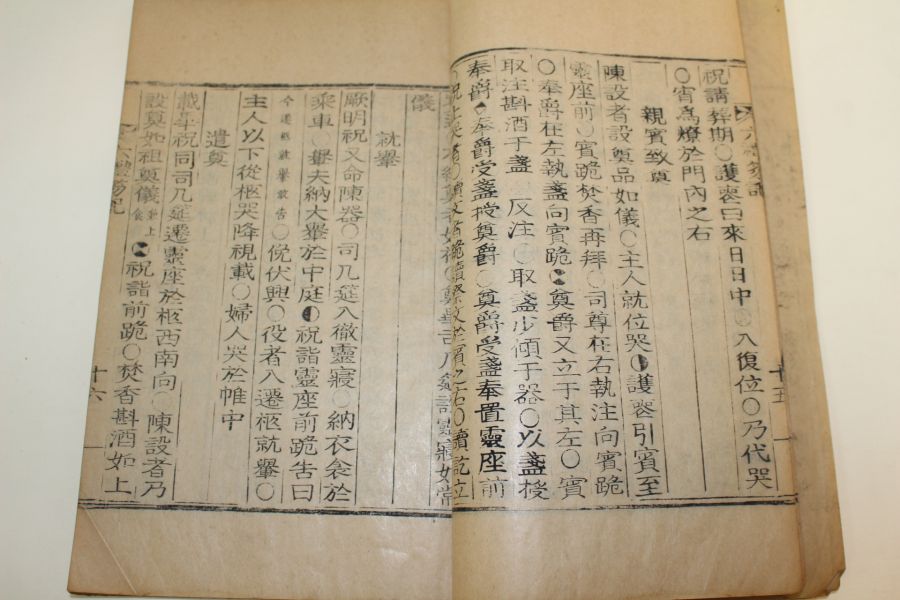 祝請葬期○護喪曰來日日中○入復位○乃代哭
○宵爲燎於門內之右
親賓致奠
陳設者設奠品如儀○主人就位哭◐護喪引賓至
靈座前○賓跪焚香再拜○司尊在右執注向賓跪
○奉爵在左執盞向賓跪 奠爵又立于其左○賓
取注斟酒于盞 反注○取盞少傾于器○以盞授
奉爵 奉爵受盞授奠爵○奠爵受盞奉置靈座前
儀
就轝
厥明祝又命陳器○司几筵入徹靈寢○納衣衾於
乘車○轝夫納大轝於中庭◐祝詣靈座前跪告曰
今遷柩就轝敢告○俛伏興○役者入遷柩就轝○
主人以下從柩哭降視載○婦人哭於帷中
遣奠
載畢祝同司几筵遷靈座於柩西南向○陳設者乃
設奠如祖奠儀 祝詣前跪○焚香斟酒如上
十五
十六